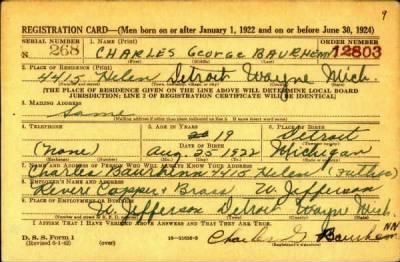 9
REGISTRATION CARD—(Men born on or after January 1, 1922 and on or before June 30, 1924)
SERIAL NUMBER 1. NAME (Print) ORDER NUMBER
N 268 CHARLES GEORGE 12803
(First) (Middle) (Last)
2. PLACE OF RESIDENCE (Print)
4415 Helen Detroit Wayne Mich.
[THE PLACE OF RESIDENCE GIVEN ON THE LINE ABOVE WILL DETERMINE LOCAL BOARD
JURISDICTION; LINE 2 OF REGISTRATION CERTIFICATE WILL BE IDENTICAL]
3. MAILING ADDRESS
Same
4. TELEPHONE 5. AGE IN YEARS 6. PLACE OF BIRTH
19 Detroit
DATE OF BIRTH
(None) Aug 25 1922 Michigan
7. NAME AND ADDRESS OF PERSON WHO WILL ALWAYS KNOW YOUR ADDRESS
Charles 4415 Helen (Father)
8. EMPLOYER'S NAME AND ADDRESS
Copper & Brass W. Jefferson
9. PLACE OF EMPLOYMENT OR BUSINESS
W. Jefferson Detroit Wayne Mich.
I AFFIRM THAT I HAVE VERIFIED ABOVE ANSWERS AND THAT THEY ARE TRUE.
D. S. S. Form 1
(Revised 6-1-42) Charles G.
(Registrant's signature)